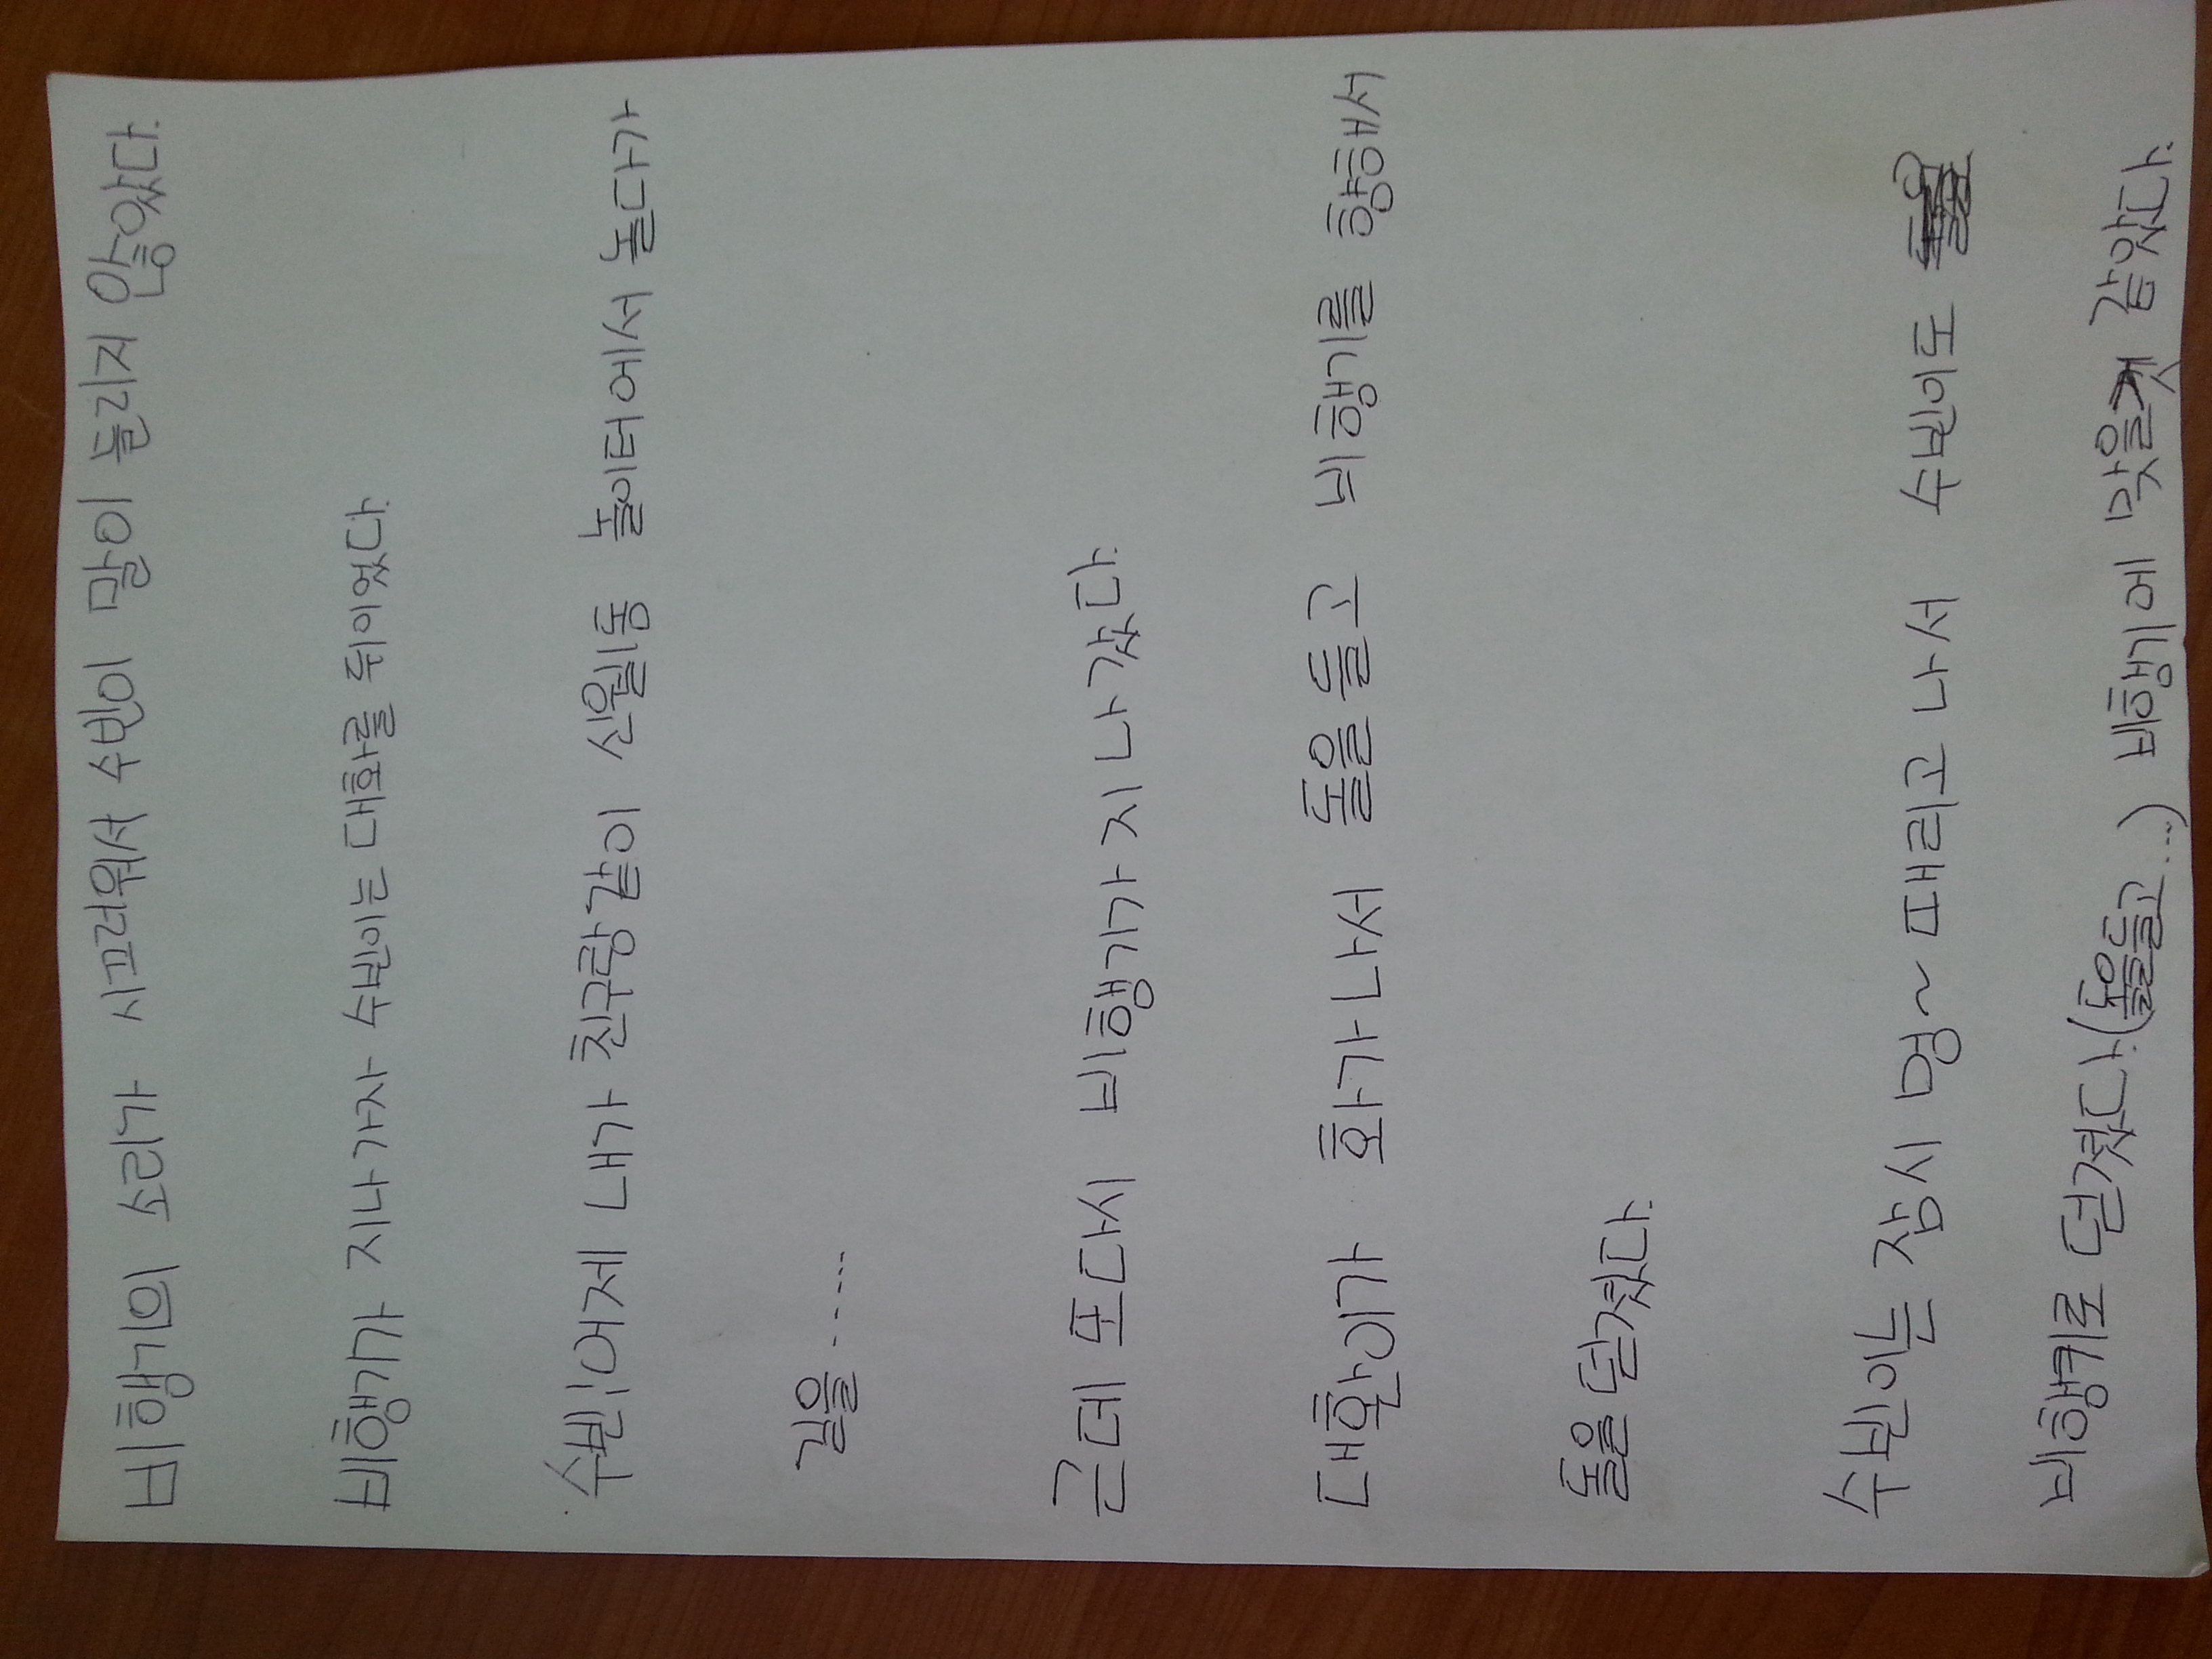 비행기의 소리가 시끄러워서 수빈이 말이 들리지 않았다.
비행기가 지나가자 수빈이는 대화를 뒤이었다.
수빈:어제 내가 친구랑같이 신월1동 놀이터에서 놀다가
길을.....
근데 또다시 비행기가 지나갔다.
대환이가 화가나서 돌을들고 비행기를 향해서
돌을 던졌다.
수빈이는 잠시 멍~ 때리고 나서 수빈이도
비행키로 던졌다.(돌을들고....) 비행기에 맞을것 같았다.